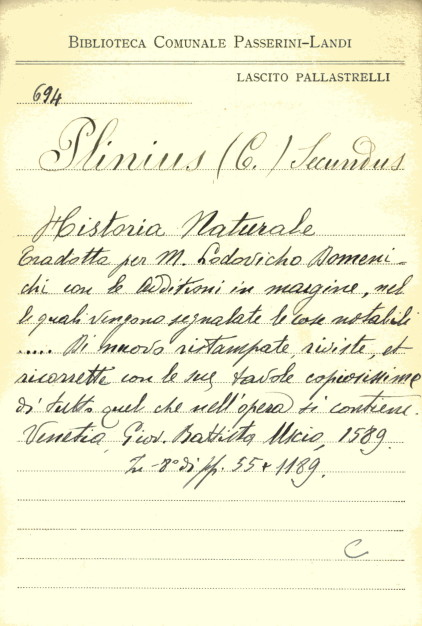 BIBLIOTECA COMUNALE PASSERINI-LANDI
LASCITO PALLASTRELLI
694
Plinius (C.) Secundus
Historia Naturale
Tradotta per M. Lodovicho Domeni-
chi con le Additioni in margine, nel
le quali vengono segnalate le cose notabili
..... Di nuovo ristampate, riviste, et
ricorrette con le sue tavole copiosissime
di tutto quel che nell'opera si contiene.
Venetia, Giov. Battista Uscio, 1589.
In-8° di pp. 55+1189.
C